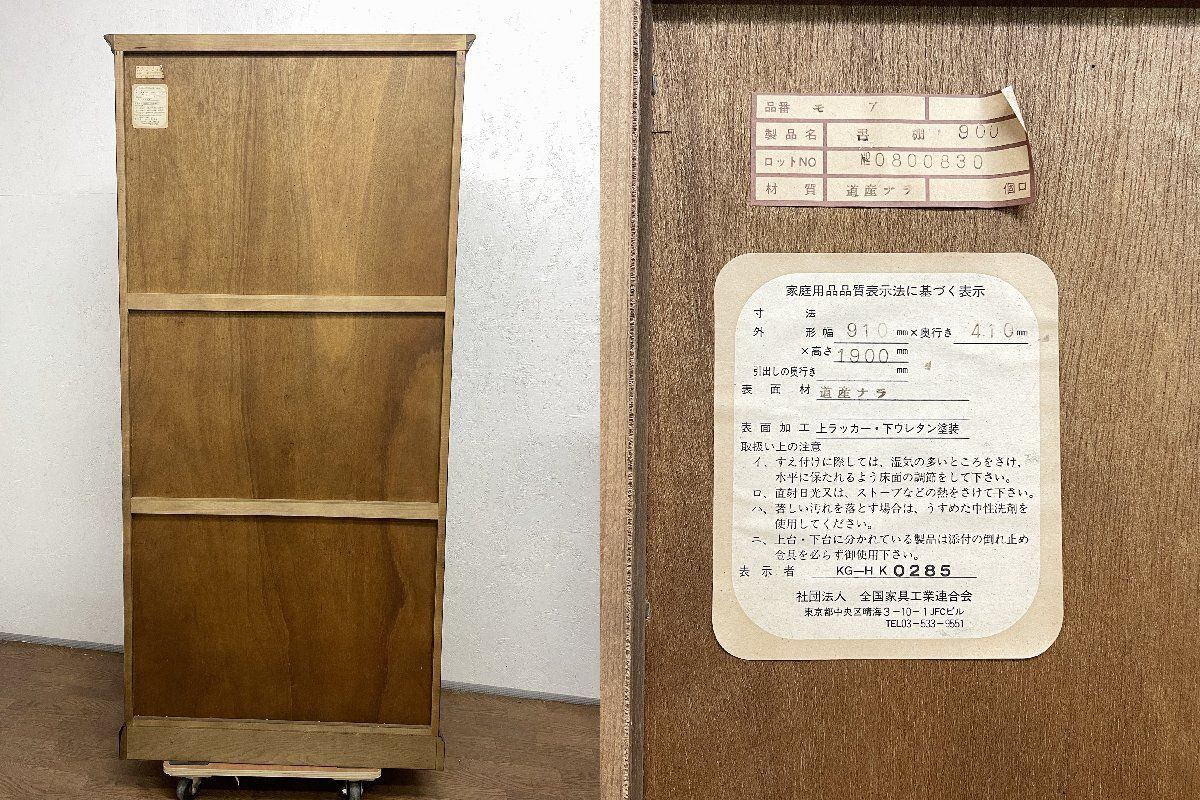 品番 モ ア
製品名 書棚 900
ロットNO 0800830
材質 道産ナラ 個口
家庭用品品質表示法に基づく表示
寸法
外形 幅 910 mm×奥行き 410 mm
×高さ 1900 mm
引出しの奥行き mm
表面材 道産ナラ
表面加工 上ラッカー・下ウレタン塗装
取扱い上の注意
イ、すえ付けに際しては、湿気の多いところをさけ、
水平に保たれるよう床面の調節をして下さい。
ロ、直射日光又は、ストーブなどの熱をさけて下さい。
ハ、著しい汚れを落とす場合は、うすめた中性洗剤を
使用してください。
ニ、上台・下台に分かれている製品は添付の倒れ止め
金具を必らず御使用下さい。
表示者 KG-HK 0285
社団法人 全国家具工業連合会
東京都中央区晴海3-10-1 JFCビル
TEL03-533-9551